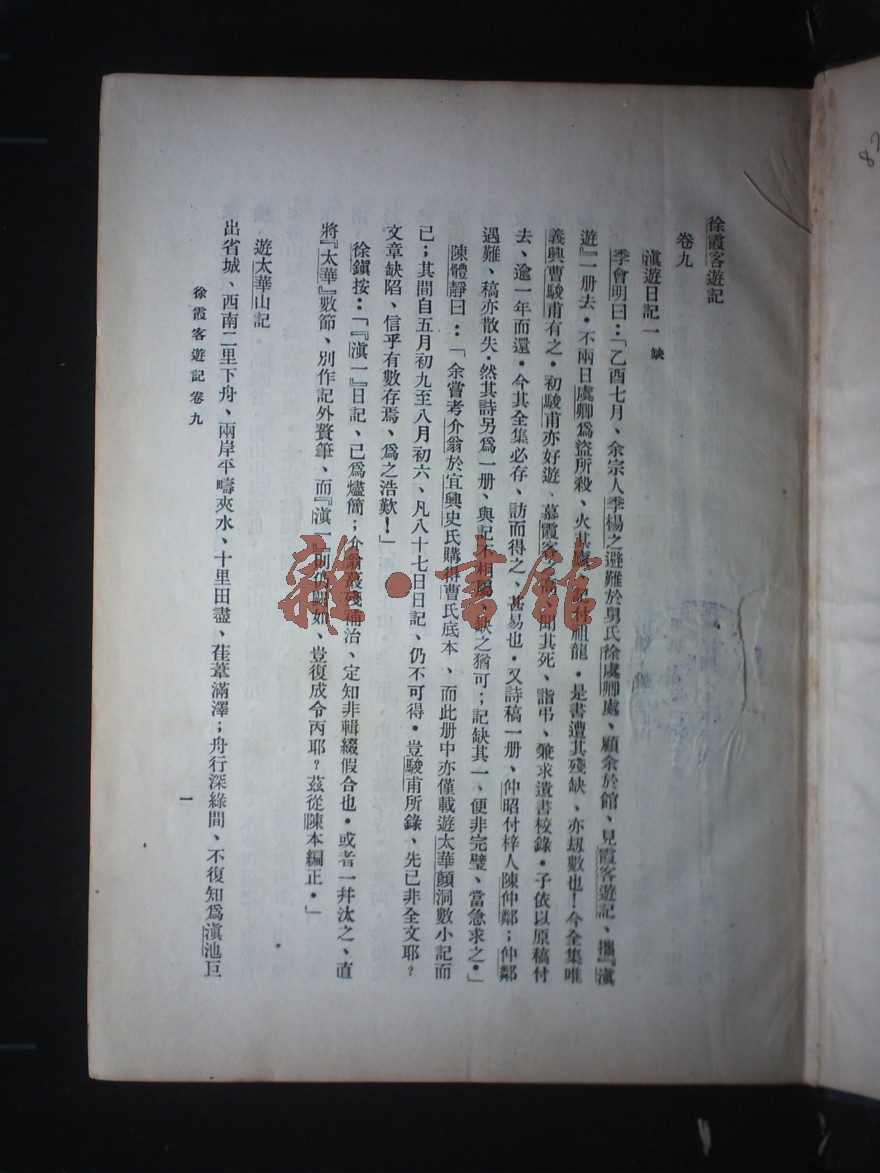 徐霞客遊記
卷九
滇遊日記一 缺
季會明曰：「乙酉七月、余宗人季楊之避難於舅氏徐虞卿處、顧余於館、見霞客遊記、攜『滇
遊』一册去．不兩日虞卿爲盜所殺、火其廬、記付祖龍．是書遭其殘缺、亦刼數也！今全集唯
義興曹駿甫有之．初駿甫亦好遊、慕霞客之高、聞其死、詣弔、兼求遺書校錄．子依以原稿付
去、逾一年而還．今其全集必存、訪而得之、甚易也．又詩稿一册、仲昭付梓人陳仲鄰；仲鄰
遇難、稿亦散失．然其詩另爲一册、與記不相屬、缺之猶可；記缺其一、便非完璧、當急求之．」
陳體靜曰：「余嘗考介翁於宜興史氏購得曹氏底本、而此册中亦僅載遊太華顏洞數小記而
已；其間自五月初九至八月初六、凡八十七日日記、仍不可得．豈駿甫所錄、先已非全文耶？
文章缺陷、信乎有數存焉、爲之浩歎！」
徐鎭按：「『滇一』日記、已爲燼簡；介翁裒殘補治、定知非輯綴假合也．或者一幷汰之、直
將『太華』數節、別作記外贅筆、而『滇一』則仍闕如、豈復成令丙耶？茲從陳本編正．」
遊太華山記
出省城、西南二里下舟、兩岸平疇夾水、十里田盡、萑葦滿澤；舟行深綠間、不復知爲滇池巨
徐霞客遊記卷九
一
雜·書館
87